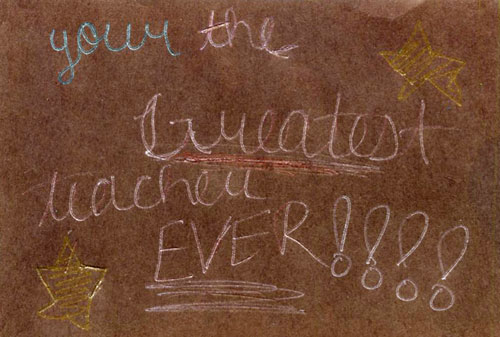 your the
Greatest
teacher
EVER!!!!